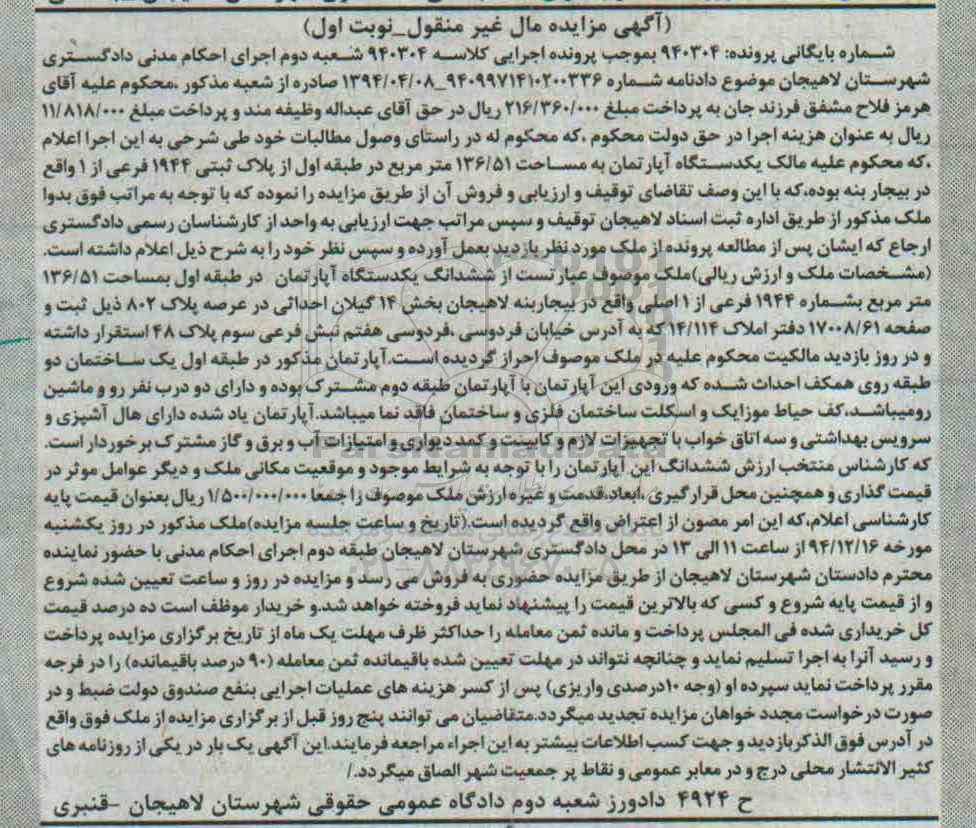 (آگهی مزایده مال غیر منقول_نوبت اول)
شماره بایگانی پرونده: ۹۴۰۳۰۴ بموجب پرونده اجرایی کلاسه ۹۴۰۳۰۴ شعبه دوم اجرای احکام مدنی دادگستری
شهرستان لاهیجان موضوع دادنامه شماره ۹۴۰۹۹۷۱۴۱۰۲۰۰۳۳۶_۱۳۹۴/۰۴/۰۸ صادره از شعبه مذکور ،محکوم علیه آقای
هرمز فلاح مشفق فرزند جان به پرداخت مبلغ ۲۱۶/۳۶۰/۰۰۰ ریال در حق آقای عبداله وظیفه مند و پرداخت مبلغ ۱۱/۸۱۸/۰۰۰
ریال به عنوان هزینه اجرا در حق دولت محکوم ،که محکوم له در راستای وصول مطالبات خود طی شرحی به این اجرا اعلام
،که محکوم علیه مالک یکدستگاه آپارتمان به مساحت ۱۳۶/۵۱ متر مربع در طبقه اول از پلاک ثبتی ۱۹۴۴ فرعی از ۱ واقع
در بیجار بنه بوده،که با این وصف تقاضای توقیف و ارزیابی و فروش آن از طریق مزایده را نموده که با توجه به مراتب فوق بدوا
ملک مذکور از طریق اداره ثبت اسناد لاهیجان توقیف و سپس مراتب جهت ارزیابی به واحد از کارشناسان رسمی دادگستری
ارجاع که ایشان پس از مطالعه پرونده از ملک مورد نظر بازدید بعمل آورده و سپس نظر خود را به شرح ذیل اعلام داشته است.
(مشخصات ملک و ارزش ریالی)ملک موصوف عبارتست از ششدانگ یکدستگاه آپارتمان در طبقه اول بمساحت ۱۳۶/۵۱
متر مربع بشماره ۱۹۴۴ فرعی از ۱ اصلی واقع در بیجاربنه لاهیجان بخش ۱۴ گیلان احداثی در عرصه پلاک ۸۰۲ ذیل ثبت و
صفحه ۱۷۰۰۸/۶۱ دفتر املاک ۱۴/۱۱۴ که به آدرس خیابان فردوسی ،فردوسی هفتم نبش فرعی سوم پلاک ۴۸ استقرار داشته
و در روز بازدید مالکیت محکوم علیه در ملک موصوف احراز گردیده است.آپارتمان مذکور در طبقه اول یک ساختمان دو
طبقه روی همکف احداث شده که ورودی این آپارتمان با آپارتمان طبقه دوم مشترک بوده و دارای دو درب نفر رو و ماشین
رومیباشد،کف حیاط موزایک و اسکلت ساختمان فلزی و ساختمان فاقد نما میباشد.آپارتمان یاد شده دارای هال آشپزی و
سرویس بهداشتی و سه اتاق خواب با تجهیزات لازم و کابینت و کمد دیواری و امتیازات آب و برق و گاز مشترک برخوردار است.
که کارشناس منتخب ارزش ششدانگ این آپارتمان را با توجه به شرایط موجود و موقعیت مکانی ملک و دیگر عوامل موثر در
قیمت گذاری و همچنین محل قرارگیری ،ابعاد،قدمت و غیره ارزش ملک موصوف را جمعا ۱/۵۰۰/۰۰۰/۰۰۰ ریال بعنوان قیمت پایه
کارشناسی اعلام،که این امر مصون از اعتراض واقع گردیده است.(تاریخ و ساعت جلسه مزایده)ملک مذکور در روز یکشنبه
مورخه ۹۴/۱۲/۱۶ از ساعت ۱۱ الی ۱۳ در محل دادگستری شهرستان لاهیجان طبقه دوم اجرای احکام مدنی با حضور نماینده
محترم دادستان شهرستان لاهیجان از طریق مزایده حضوری به فروش می رسد و مزایده در روز و ساعت تعیین شده شروع
و از قیمت پایه شروع و کسی که بالاترین قیمت را پیشنهاد نماید فروخته خواهد شد.و خریدار موظف است ده درصد قیمت
کل خریداری شده فی المجلس پرداخت و مانده ثمن معامله را حداکثر ظرف مهلت یک ماه از تاریخ برگزاری مزایده پرداخت
و رسید آنرا به اجرا تسلیم نماید و چنانچه نتواند در مهلت تعیین شده باقیمانده ثمن معامله (۹۰ درصد باقیمانده) را در فرجه
مقرر پرداخت نماید سپرده او (وجه ۱۰درصدی واریزی) پس از کسر هزینه های عملیات اجرایی بنفع صندوق دولت ضبط و در
صورت درخواست مجدد خواهان مزایده تجدید میگردد.متقاضیان می توانند پنج روز قبل از برگزاری مزایده از ملک فوق واقع
در آدرس فوق الذکر بازدید و جهت کسب اطلاعات بیشتر به این اجراء مراجعه فرمایند.این آگهی یک بار در یکی از روزنامه های
کثیر الانتشار محلی درج و در معابر عمومی و نقاط پر جمعیت شهر الصاق میگردد./
ح ۴۹۲۴ دادورز شعبه دوم دادگاه عمومی حقوقی شهرستان لاهیجان -قنبری